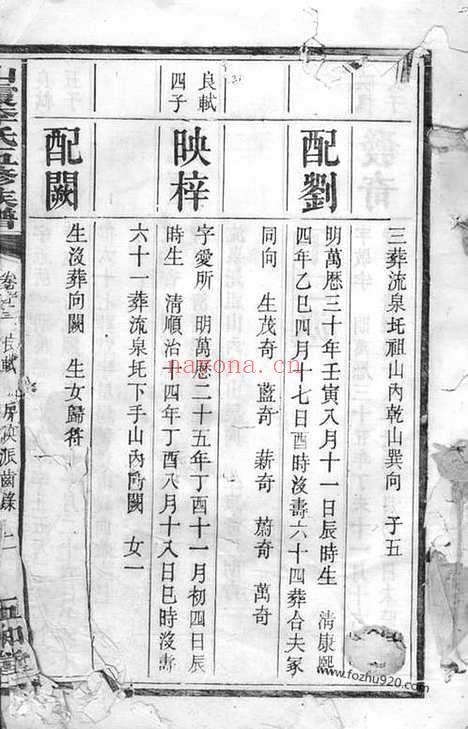 三葬流泉圫祖山內乾山巽向　子五
配劉
明萬厯三十年壬寅八月十一日辰時生　清康熙
四年乙巳四月十七日酉時沒壽六十四葬合夫冢
同向　生茂奇　藍奇　薪奇　蔚奇　萬奇
良軾
四子
映梓
字愛所　明萬厯二十五年丁酉十一月初四日辰
時生　清順治十四年丁酉八月十八日巳時沒壽
六十一葬流泉圫下手山內向闕　女一
配闕
生沒葬向闕　生女歸符
氏五修族譜
卷
派齒錄
nayona.cn
www.fozhu920.com